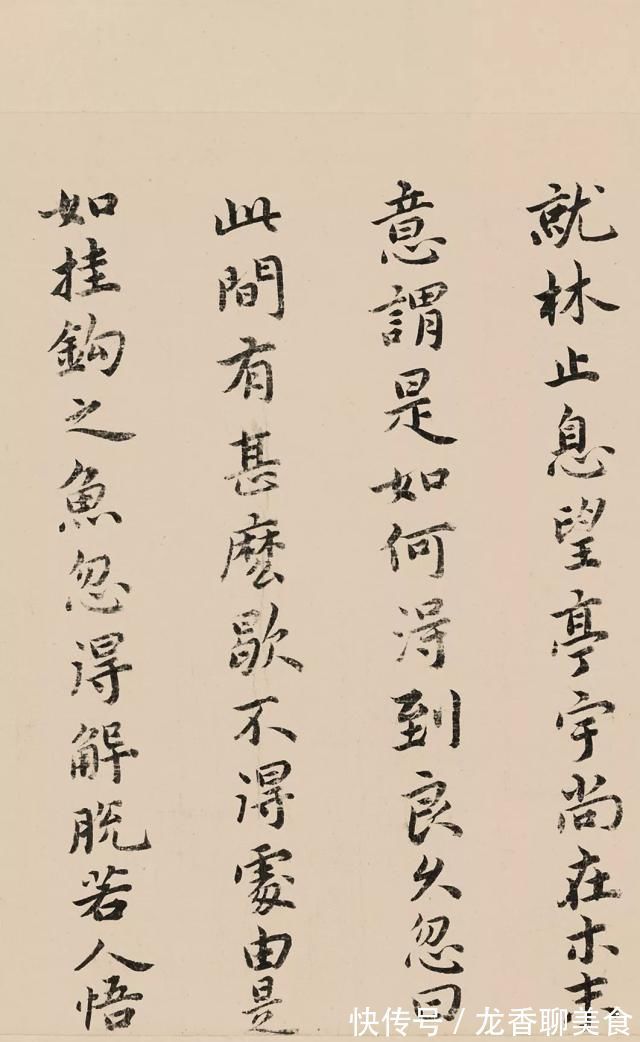 就林止息望亭宇尚在木末
意謂是如何得到良久忽曰
此間有甚麼歇不得處由是
如挂鈎之魚忽得解脫若人悟
快传号/龙香聊美食